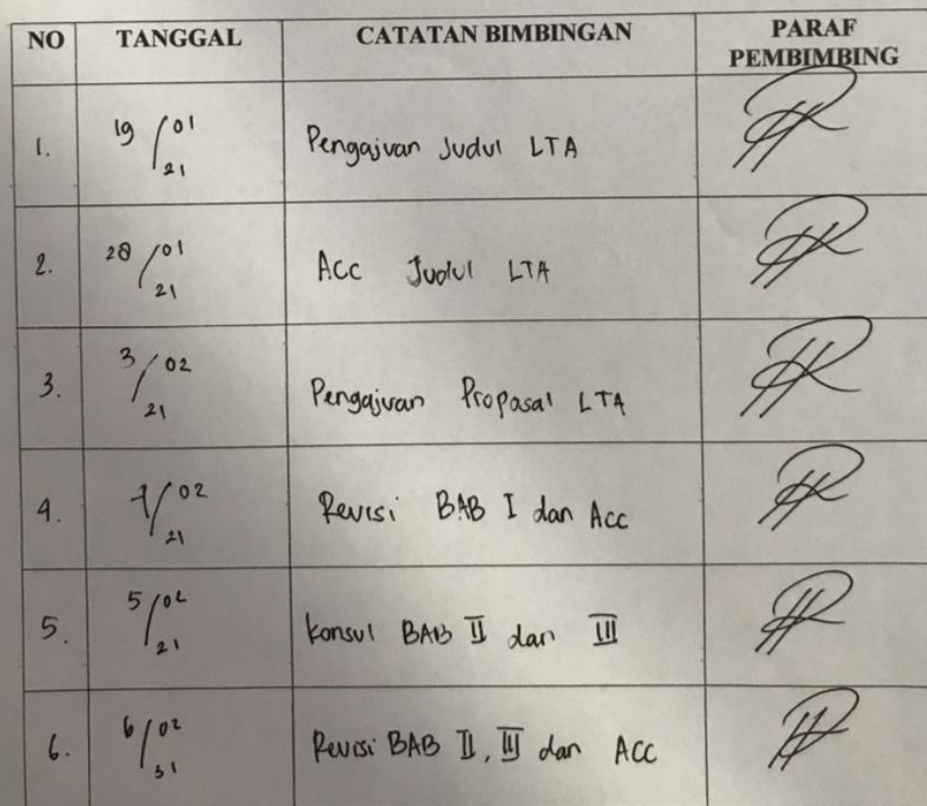 NO TANGGAL CATATAN BIMBINGAN PARAF PEMBIMBING
1. 19/01 21 Pengajuan Judul LTA
2. 28/01 21 Acc Judul LTA
3. 3/02 21 Pengajuan Proposal LTA
4. /02 21 Revisi BAB I dan Acc
5. 5/02 21 Konsul BAB II dan III
6. 6/02 31 Revisi BAB II, III dan ACC